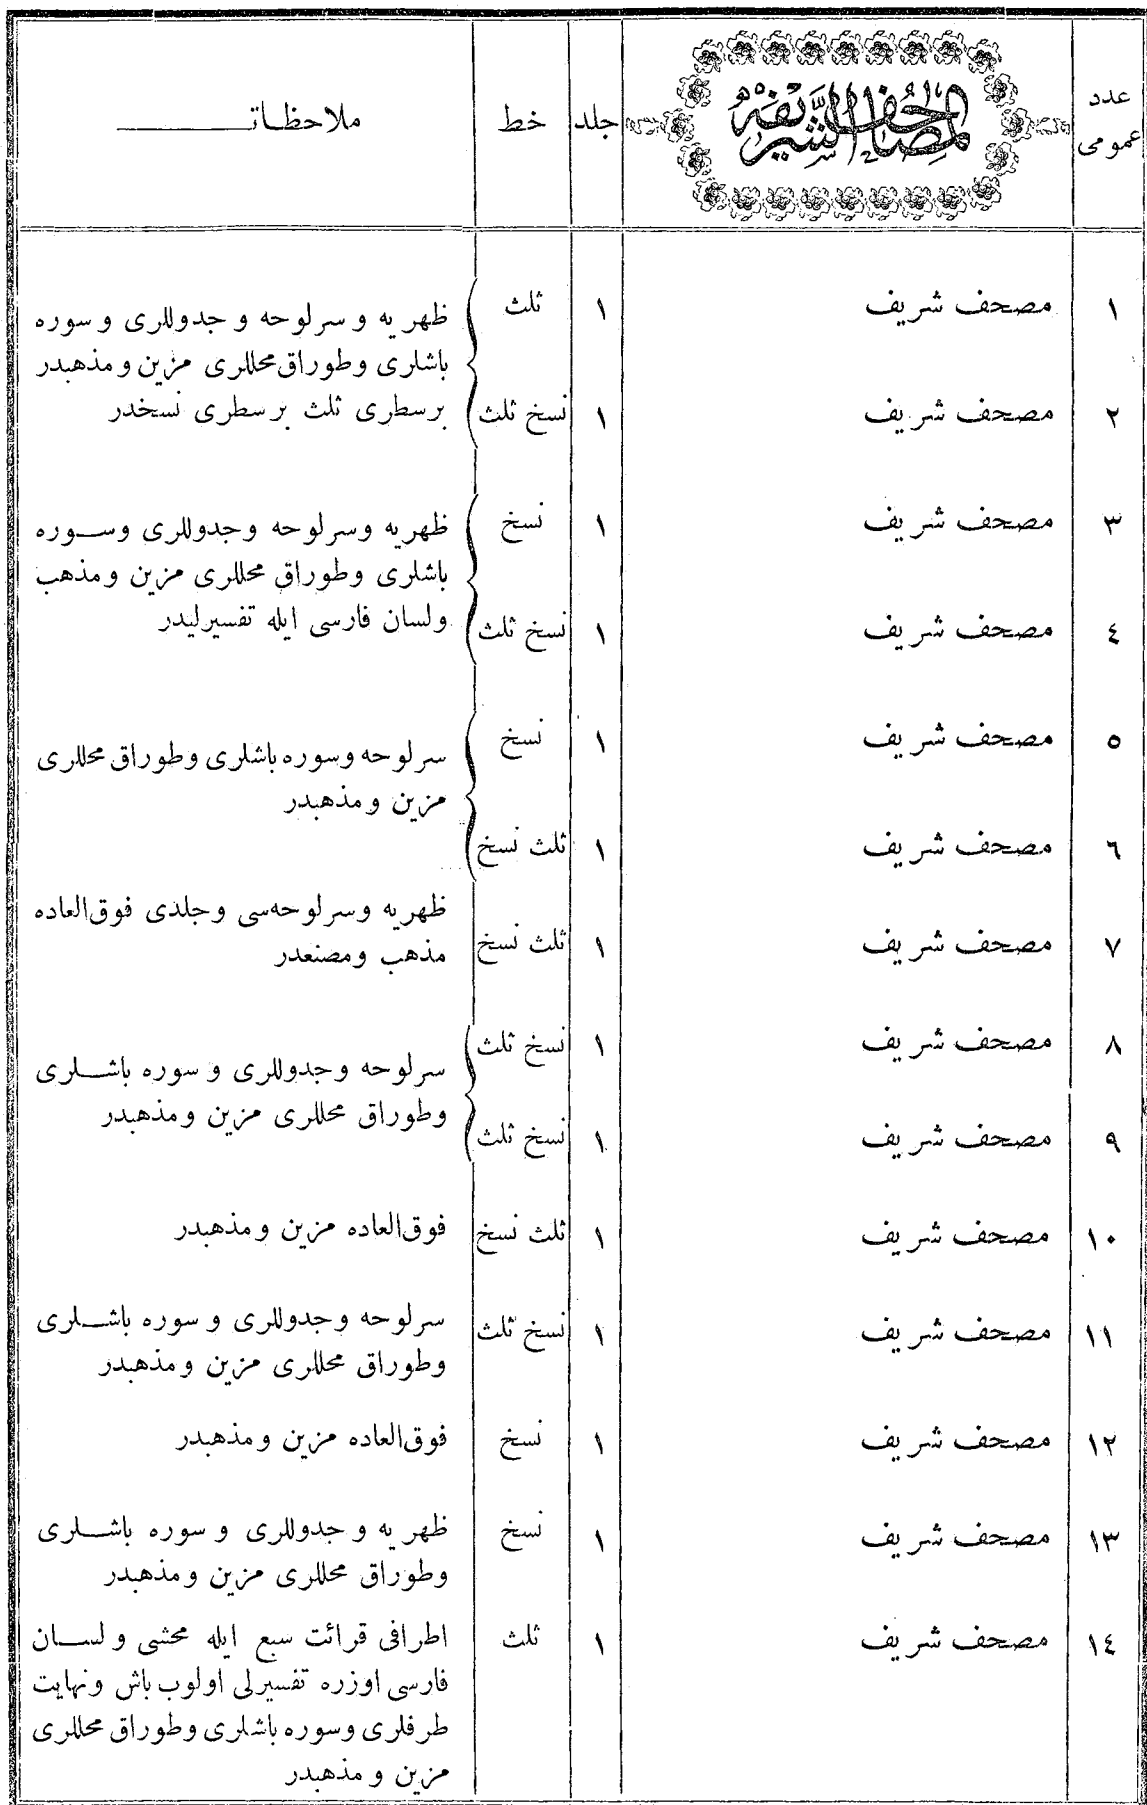 عدد عمومی | المصاحف الشریفه | جلد | خط | ملاحظات
١ | مصحف شریف | ١ | ثلث | ظهریه و سرلوحه و جدوللری و سوره
باشلری وطوراق محللری مزین ومذهبدر
٢ | مصحف شریف | ١ | نسخ ثلث | برسطری ثلث برسطری نسخدر
٣ | مصحف شریف | ١ | نسخ | ظهریه وسرلوحه وجدوللری وسوره
باشلری وطوراق محللری مزین ومذهب
٤ | مصحف شریف | ١ | نسخ ثلث | ولسان فارسی ایله تفسیرلیدر
٥ | مصحف شریف | ١ | نسخ | سرلوحه وسوره باشلری وطوراق محللری
مزین ومذهبدر
٦ | مصحف شریف | ١ | ثلث نسخ
٧ | مصحف شریف | ١ | ثلث نسخ | ظهریه وسرلوحه‌سی وجلدی فوق‌العاده
مذهب ومصنعدر
٨ | مصحف شریف | ١ | نسخ ثلث | سرلوحه وجدوللری و سوره باشلری
وطوراق محللری مزین ومذهبدر
٩ | مصحف شریف | ١ | نسخ ثلث
١٠ | مصحف شریف | ١ | ثلث نسخ | فوق‌العاده مزین ومذهبدر
١١ | مصحف شریف | ١ | نسخ ثلث | سرلوحه وجدوللری و سوره باشلری
وطوراق محللری مزین ومذهبدر
١٢ | مصحف شریف | ١ | نسخ | فوق‌العاده مزین ومذهبدر
١٣ | مصحف شریف | ١ | نسخ | ظهریه و جدوللری و سوره باشلری
وطوراق محللری مزین ومذهبدر
١٤ | مصحف شریف | ١ | ثلث | اطرافی قرائت سبع ایله محشی و لسان
فارسی اوزره تفسیرلی اولوب باش ونهایت
طرفلری وسوره باشلری وطوراق محللری
مزین و مذهبدر